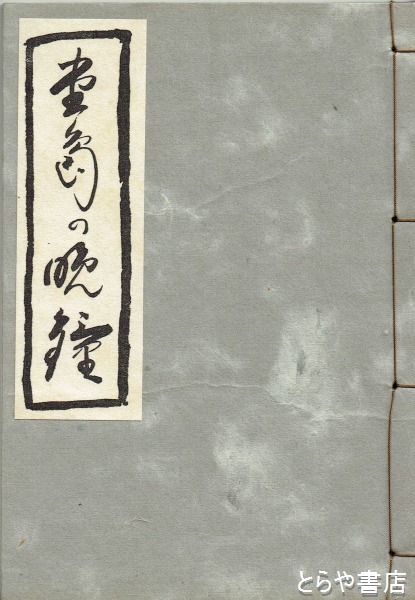 堂島の晩鐘
とらや書店